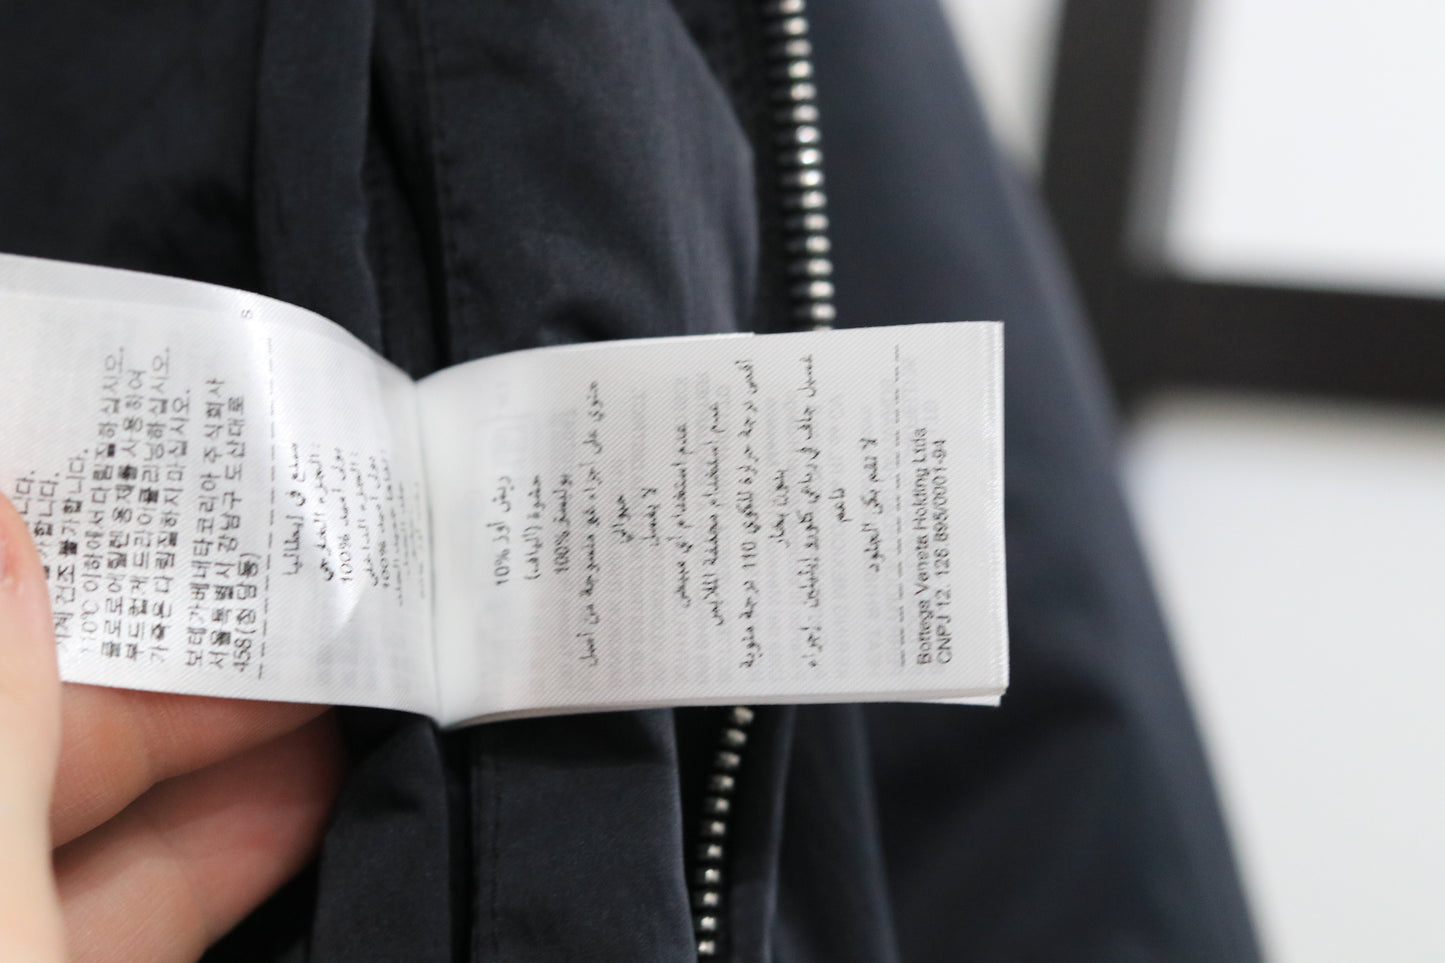 니다.
가합니다.
기계 건조 불가합니다.
110℃ 이하에서 다림질하십시오.
클로로에틸렌 용제를 사용하여
부드럽게 드라이클리닝하십시오.
가죽은 다림질하지 마십시오.
보테가베네타코리아 주식회사
서울특별시 강남구 도산대로
458(청담동)
S
صنع في إيطاليا
الجزء الخارجي:
100% بولي أميد
الجزء الداخلي:
100% بولي أميد
10% ريش أوز
حشوة (ألياف):
100% بوليستر
حتوي على أجزاء غير منسوجة من أصل
حيواني
لا يغسل
عدم استخدام أي مبيض
عدم استخدام مجففة الملابس
أقصى درجة حرارة للكوي 110 درجة مئوية
بدون بخار
غسيل جاف في رباعي كلورو إيثيلين إجراء
ناعم
لا تقم بكي الجلود
Bottega Veneta Holding Ltda
CNPJ 12. 126 895/0001-94